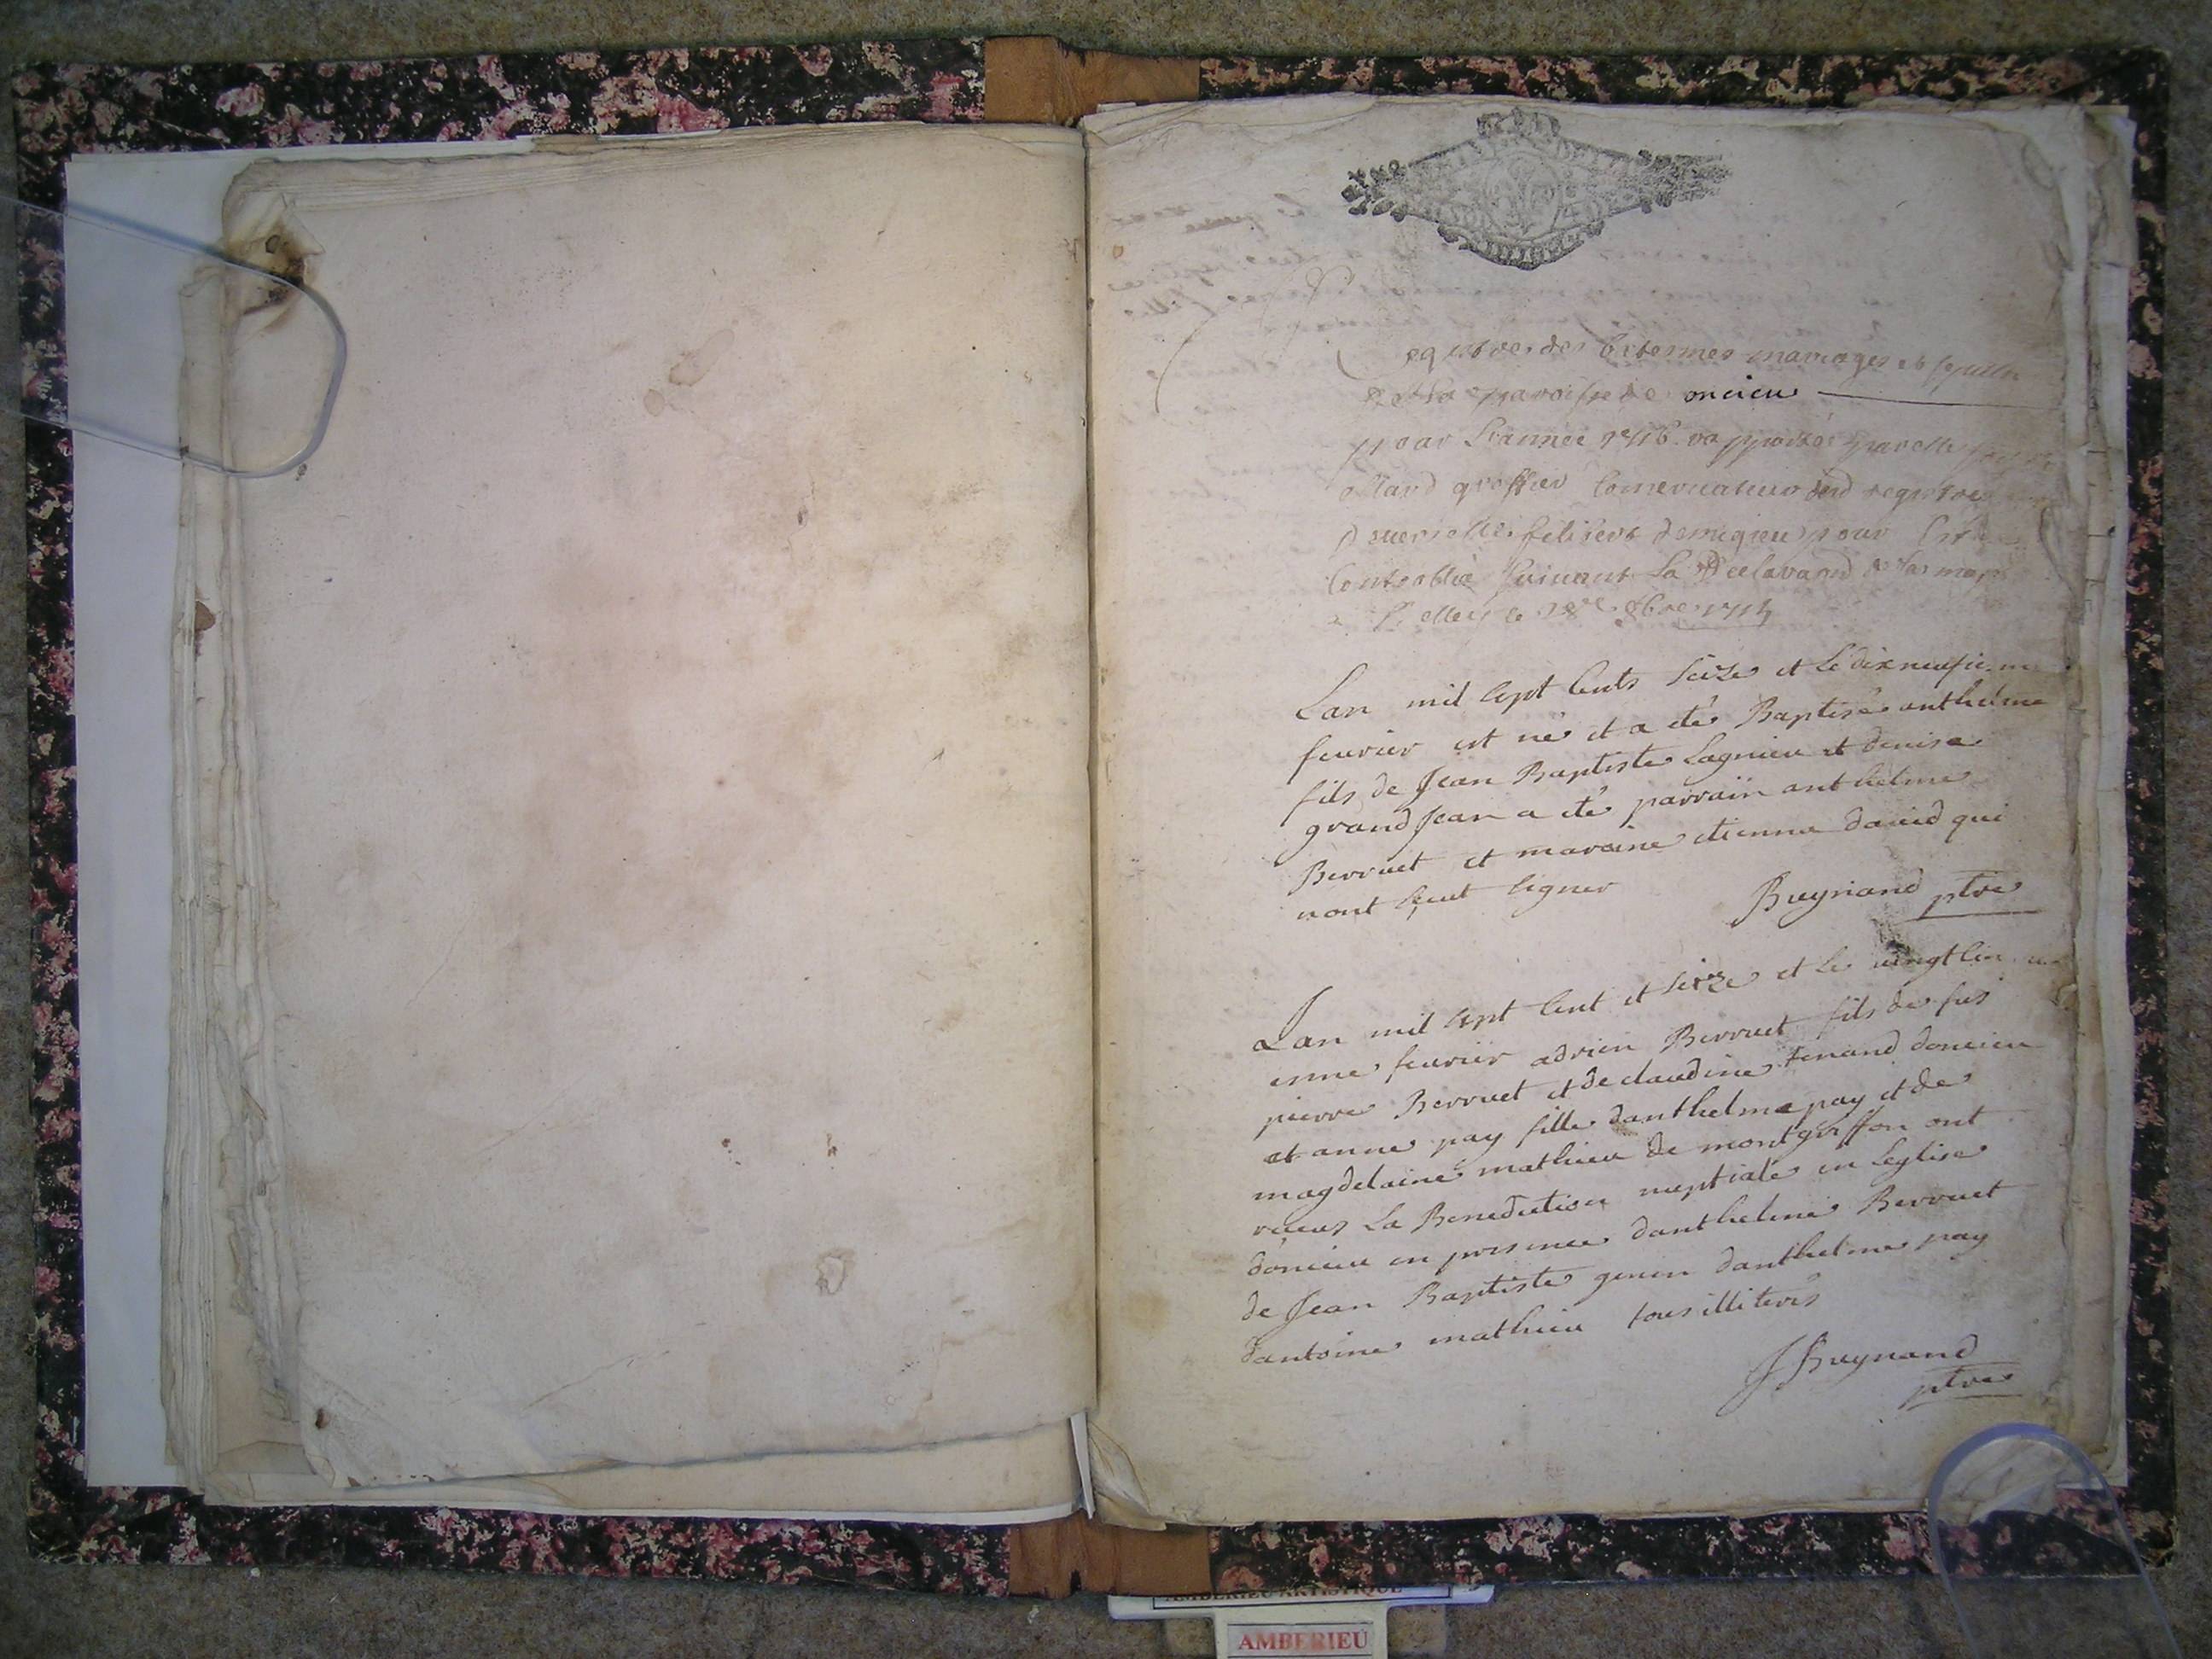 Registre des Batesmes mariages et sepultu
de la parroisse de oncieu
pour Lannée 1716.
allard greffier Conservateur desd registres
pour
Controllé suivant La declara de sa maj
a Belley le 1714
Lan mil sept Cents seize et Le dixneufiem
feurier est né et a été Baptisé anthelme
fils de Jean Baptiste Lagnieu et denise
grandJean a été parrain anthelme
Berruet et maraine etienna david qui
nont sçeut signer
Bugniand ptre
Lan mil sept Cent et seize et le
feurier adrien Berruet fils de feu
pierre Berruet et de claudine tenand doncieu
et anne pay fille danthelme pay et de
magdelaine mathieu de montgriffon ont
receus La Benediction nuptiale en Leglise
doncieu en presence danthelme Berruet
de Jean Baptiste genin danthelme pay
dantoine mathieu tous illiterés
J Bugnand
ptre
AMBERIEU ARTISTIQUE
AMBERIEU